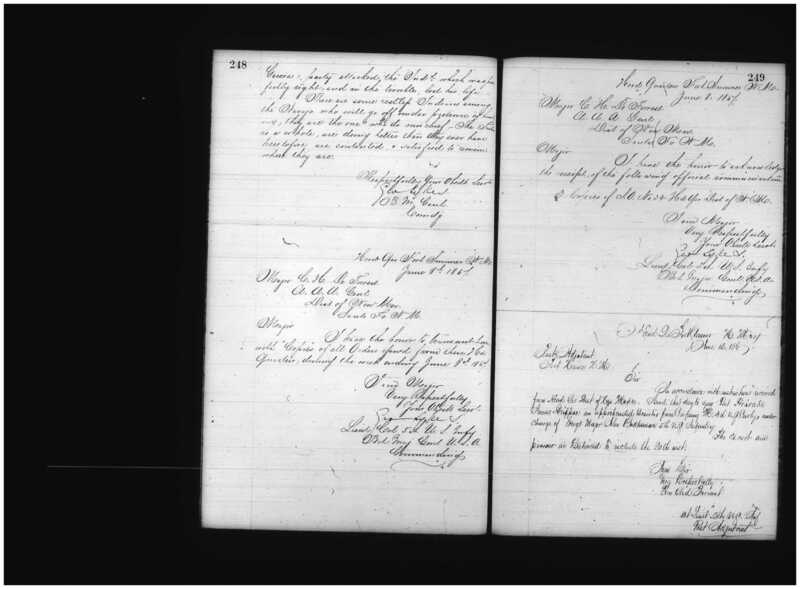 248
party attacked the Ind.ts which was
right and in the trouble, lost his life
There are some restless Indians among
the Navajo who will go off under pretence of
they are the one who do mischief. The
as a whole, are doing better than they ever have
heretofore, are contented & satisfied to remain
where they are.
Respectfully Your Obdt Servt
B. M. Genl
Comdg
Head Qrs Fort Sumner N. M.
June 8th 186
Major C. H. De Forrest
A. A. A. Genl
Dist of New Mex.
Santa Fe N. M.
Major
I have the honor to transmit here
with Copies of all Orders issued from these Head
Quarters, during the week ending June 8th 186
I am Major
Very Respectfully
Your Obdt Servt.
Lieut Col 5th U. S. Infy
Bvt Brig Genl U. S. A
Commanding
249
Head Quarters Fort Sumner N. M.
June 8. 1867.
Major C. H. De Forrest
A. A. A. Genl.
Dist of New Mex.
Santa Fe N. M.
Major
I have the honor to acknowledge
the receipt of the following official communications
Copies of S.O. No 34 Hd Qrs Dist of N. Mex.
I am Major
Very Respectfully
Your Obdt Servt
Lieut Col 5th U. S. Infy
Bvt Brig Genl U. S. A.
Commanding
Head Qrs Ft Sumner N. Mex
June 10. 186
Post Adjutant
Fort N. M.
Sir
In accordance with instructions received
from Head Qrs Dist of New Mexico. I send this day to your Post
James an from
charge of 5th U.S. Infantry
The
prisoner is Rationed to include the 20th inst.
I am Sir
Very Respectfully
Your Obd. Servant
1st Lieut 5th U.S. Infy
Post Adjutant